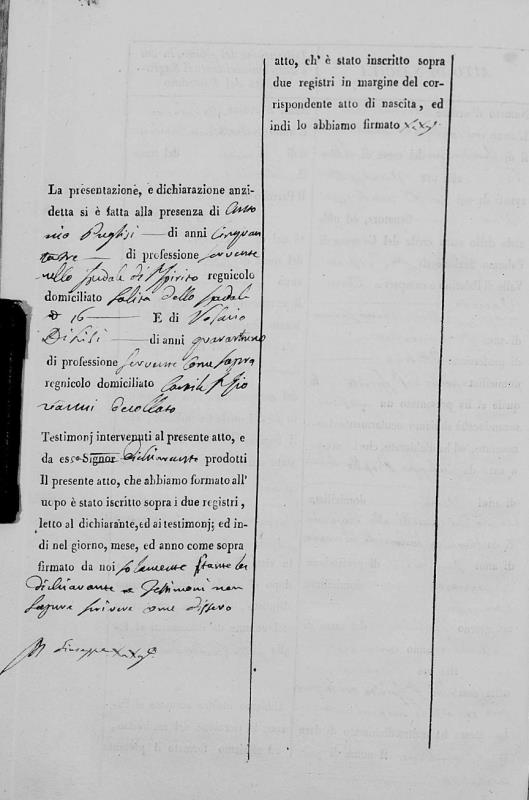 La presentazione, e dichiarazione anzi-
detta si è fatta alla presenza di Anto
nio Puglisi — di anni Cinquan
tatre — di professione servente
nello spedale di S Spirito regnicolo
domiciliato salita dello spedale
16 — E di Rosario
— di anni quarantuno
di professione servente come sopra
regnicolo domiciliato Cortile S Gio
vanni decollato
Testimonj intervenuti al presente atto, e
da esso Signor dichiarante prodotti
Il presente atto, che abbiamo formato all'
uopo è stato iscritto sopra i due registri,
letto al dichiarante, ed ai testimonj; ed in-
di nel giorno, mese, ed anno come sopra
firmato da noi solamente stante la
dichiarante e Testimoni non
sapere scrivere come dissero
Giuseppe
atto, ch' è stato inscritto sopra
due registri in margine del cor-
rispondente atto di nascita, ed
indi lo abbiamo firmato